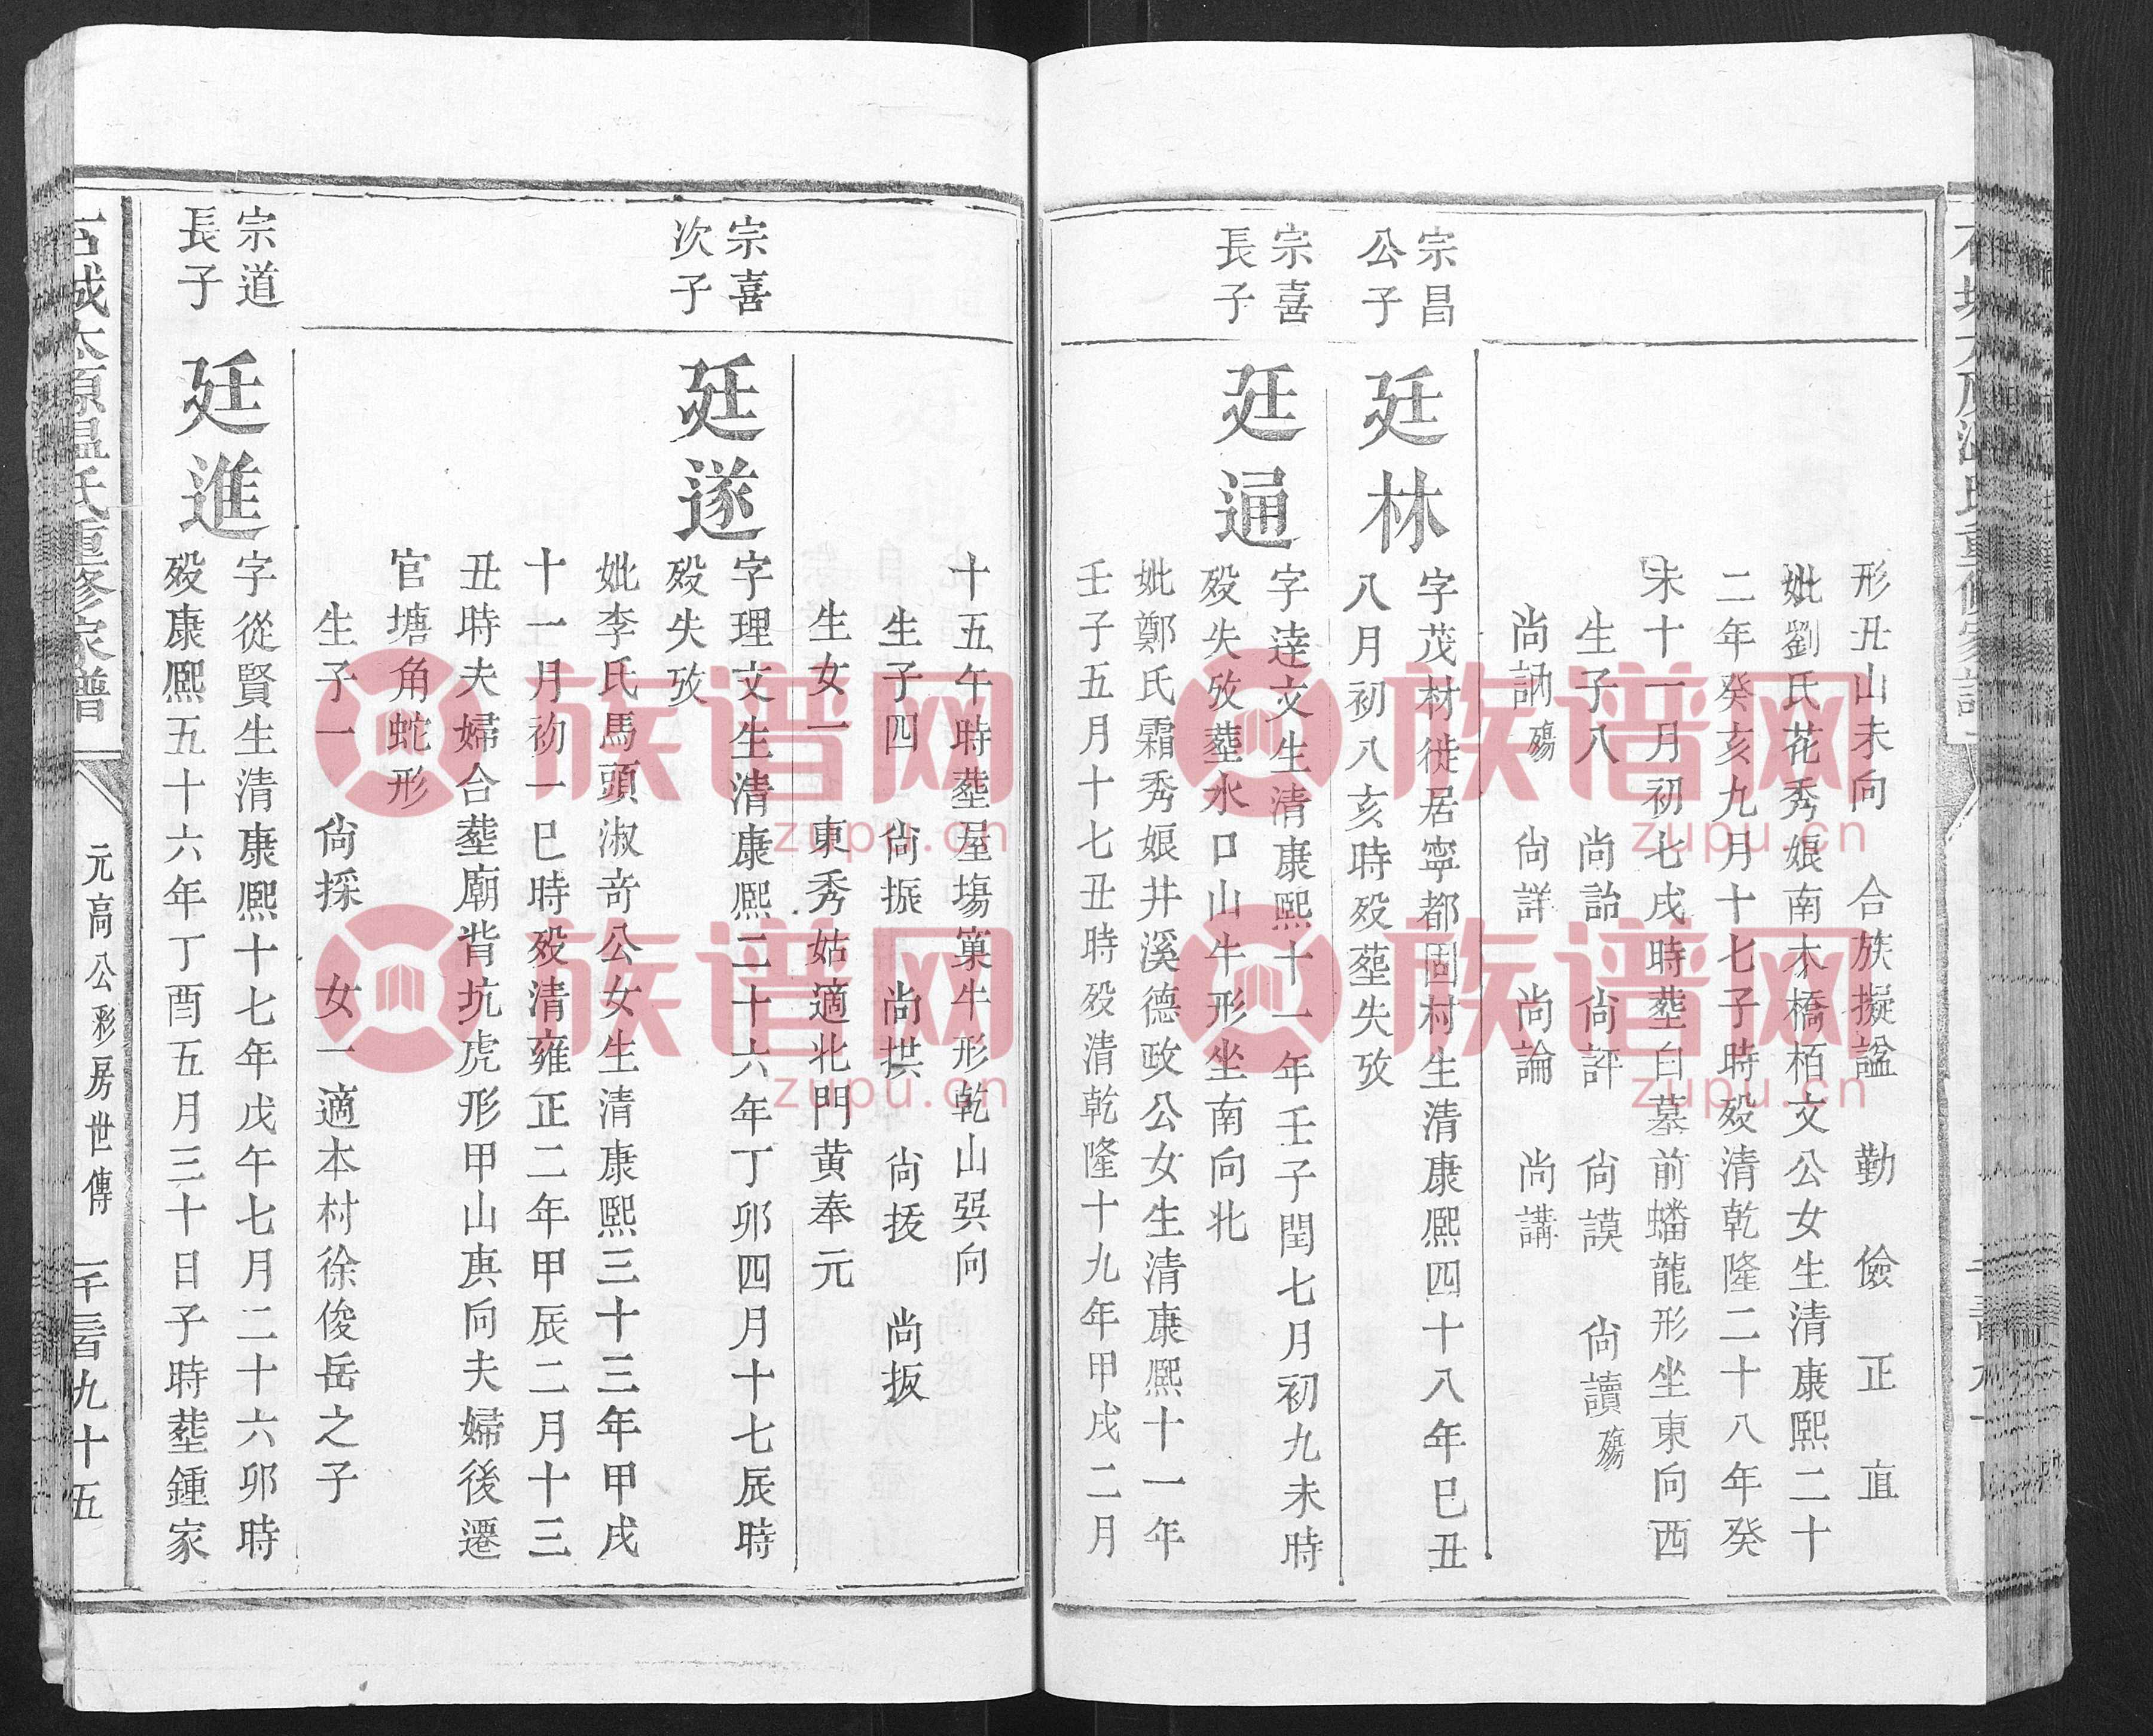 形丑山未向　合族擬謚　勤　儉　正　直
妣劉氏花秀娘南木橋栢文公女生清康熙二十
二年癸亥九月十七子時歿清乾隆二十八年癸
未十一月初七戌時塟白墓前蟠龍形坐東向西
生子八　尚詒　尚評　尚謨　尚讀殤
尚訥殤　尚詳　尚論　尚講
宗昌
公子
廷林
字茂材徙居寧都固村生清康熙四十八年巳丑
八月初八亥時歿塟失攷
宗喜
長子
廷通
字達文生清康熙十一年壬子閏七月初九未時
歿失攷塟水口山牛形坐南向北
妣鄭氏霜秀娘井溪德政公女生清康熙十一年
壬子五月十七丑時歿清乾隆十九年甲戌二月
十五午時塟屋塲窠牛形乾山巽向
生子四　尚振　尚拱　尚拔　尚扳
生女一　東秀姑適北門黄奉元
宗喜
次子
廷遂
字理文生清康熙二十六年丁卯四月十七辰時
歿失攷
妣李氏馬頭淑奇公女生清康熙三十三年甲戌
十一月初一巳時歿清雍正二年甲辰二月十三
丑時夫婦合塟廟背坑虎形甲山庚向夫婦後遷
官塘角蛇形
生子一　尚採　女一適本村徐俊岳之子
宗道
長子
廷進
字從賢生清康熙十七年戊午七月二十六卯時
歿康熙五十六年丁酉五月三十日子時塟鍾家
石城太原温氏重修家譜
元高公彩房世傳
一千三百九十五
族谱网
zupu.cn
族谱网
zupu.cn
族谱网
zupu.cn
族谱网
zupu.cn